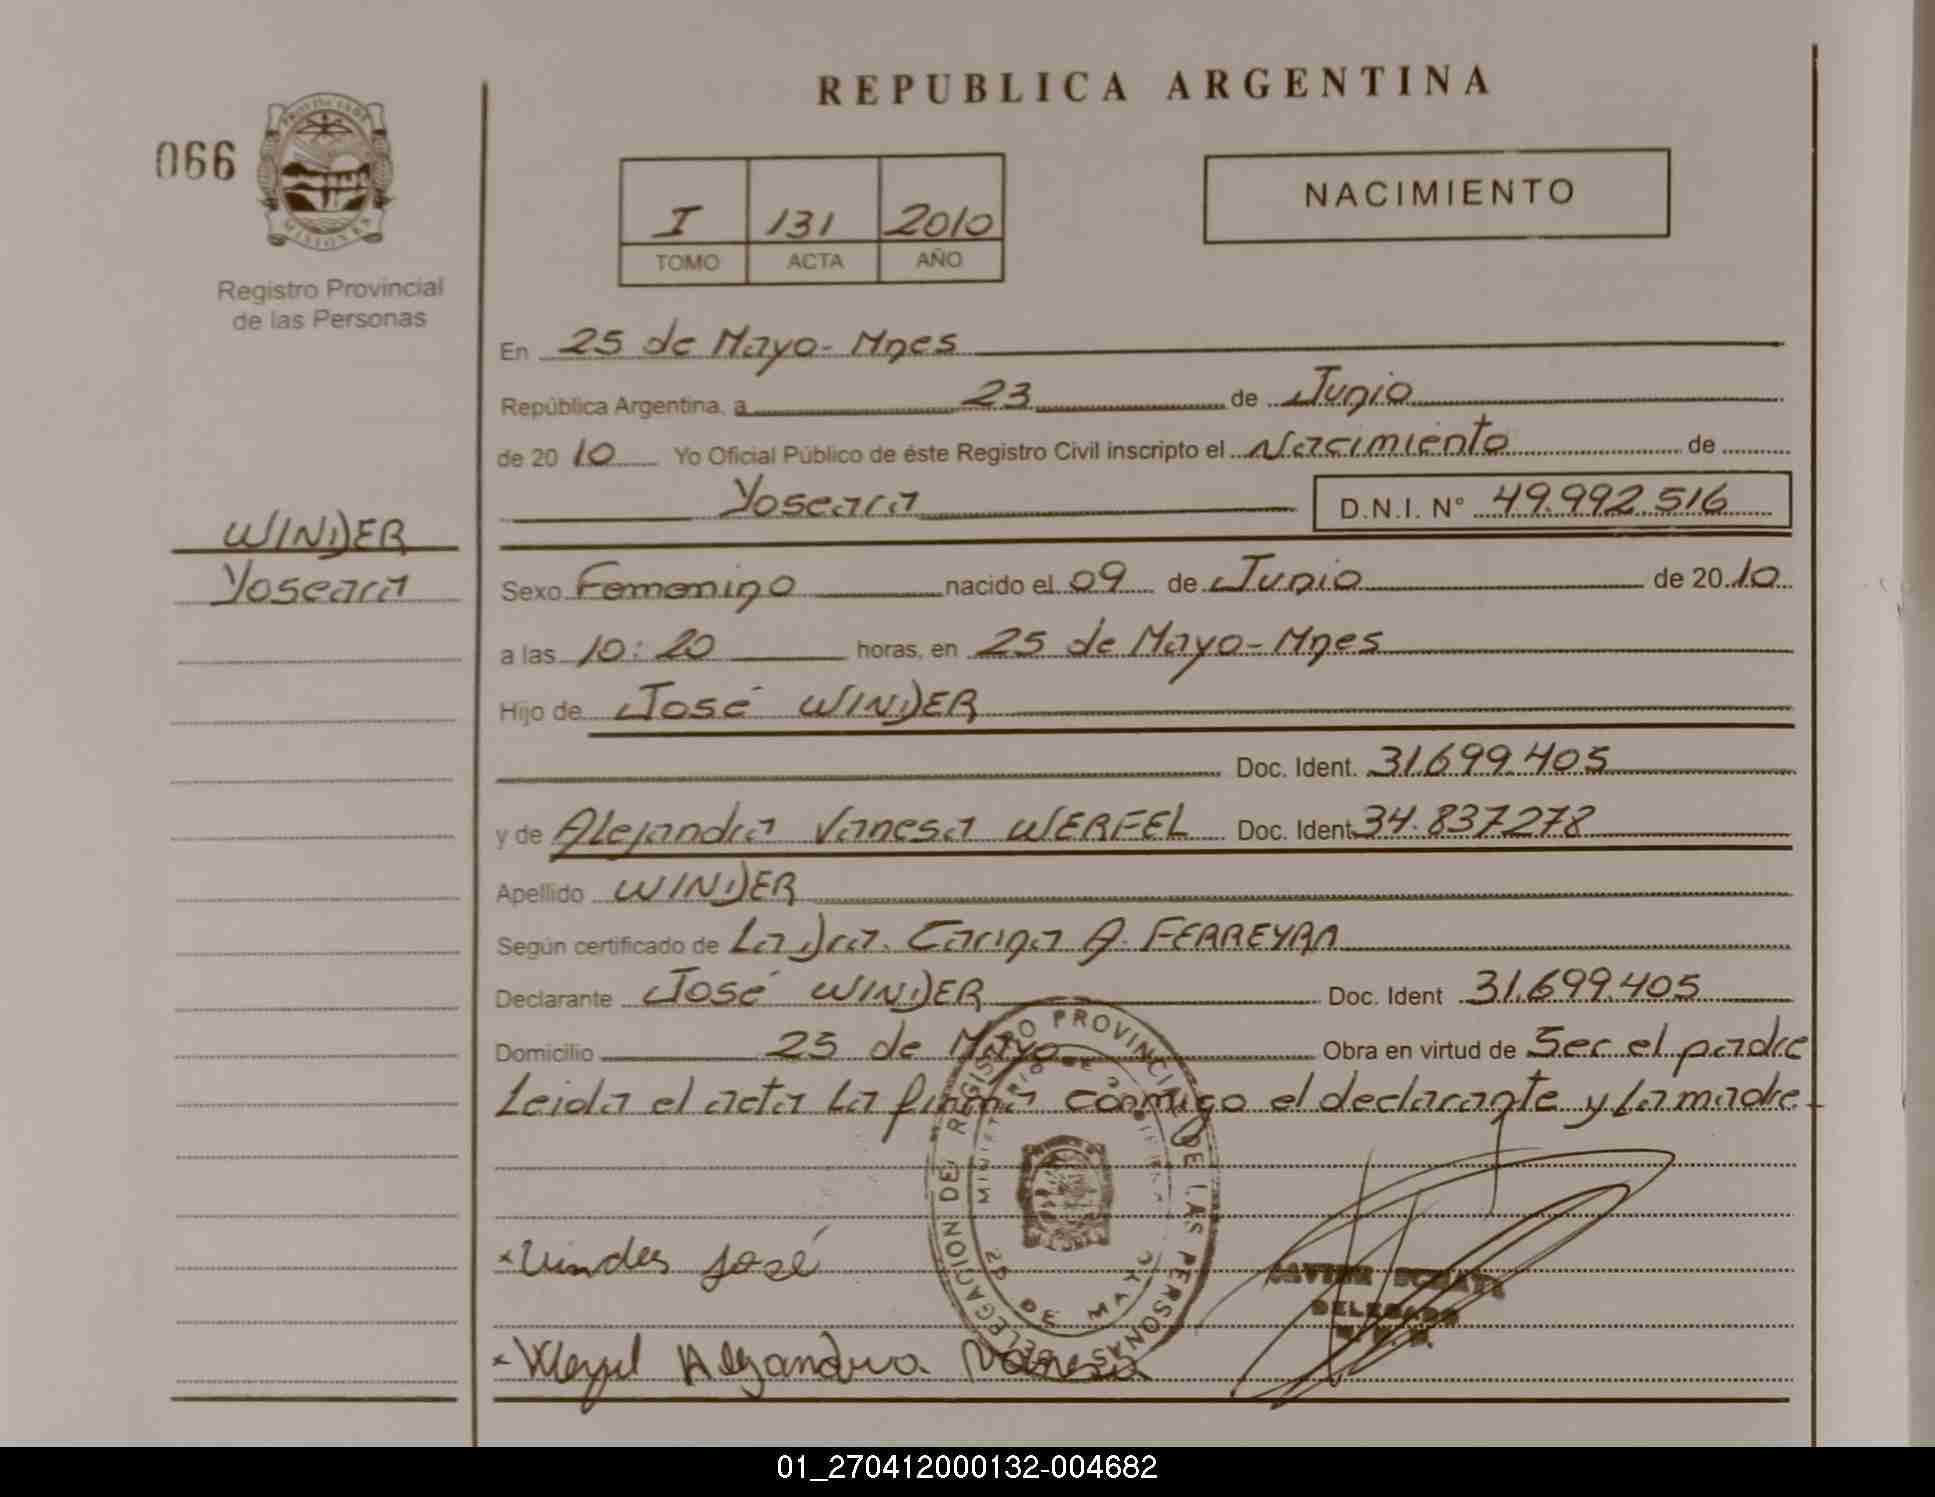 REPUBLICA ARGENTINA
066
PROVINCIA DE
MISIONES
Registro Provincial
de las Personas
I 131 2010
TOMO ACTA AÑO
NACIMIENTO
En 25 de Mayo - Mnes
República Argentina, a 23 de Junio
de 20 10 Yo Oficial Público de éste Registro Civil inscripto el Nacimiento de
Yoseara D.N.I. N° 49.992.516
WINDER
Yoseara
Sexo Femenino nacido el 09 de Junio de 20 10
a las 10:20 horas, en 25 de Mayo - Mnes
Hijo de José WINDER
Doc. Ident. 31.699.405
y de Alejandra Vanesa WERFEL Doc. Ident 34.837278
Apellido WINDER
Según certificado de La Dra. Carina A. FERREYRA
Declarante José WINDER Doc. Ident 31.699.405
Domicilio 25 de Mayo Obra en virtud de Ser el padre
Leida el acta la firma conmigo el declarante y la madre
DELEGACION DEL REGISTRO PROVINCIAL DE LAS PERSONAS
MINISTERIO DE GOBIERNO
25 DE MAYO
x Winder José
JAVIER
DELEGADO
x Werfel Alejandra Vanesa
01_270412000132-004682